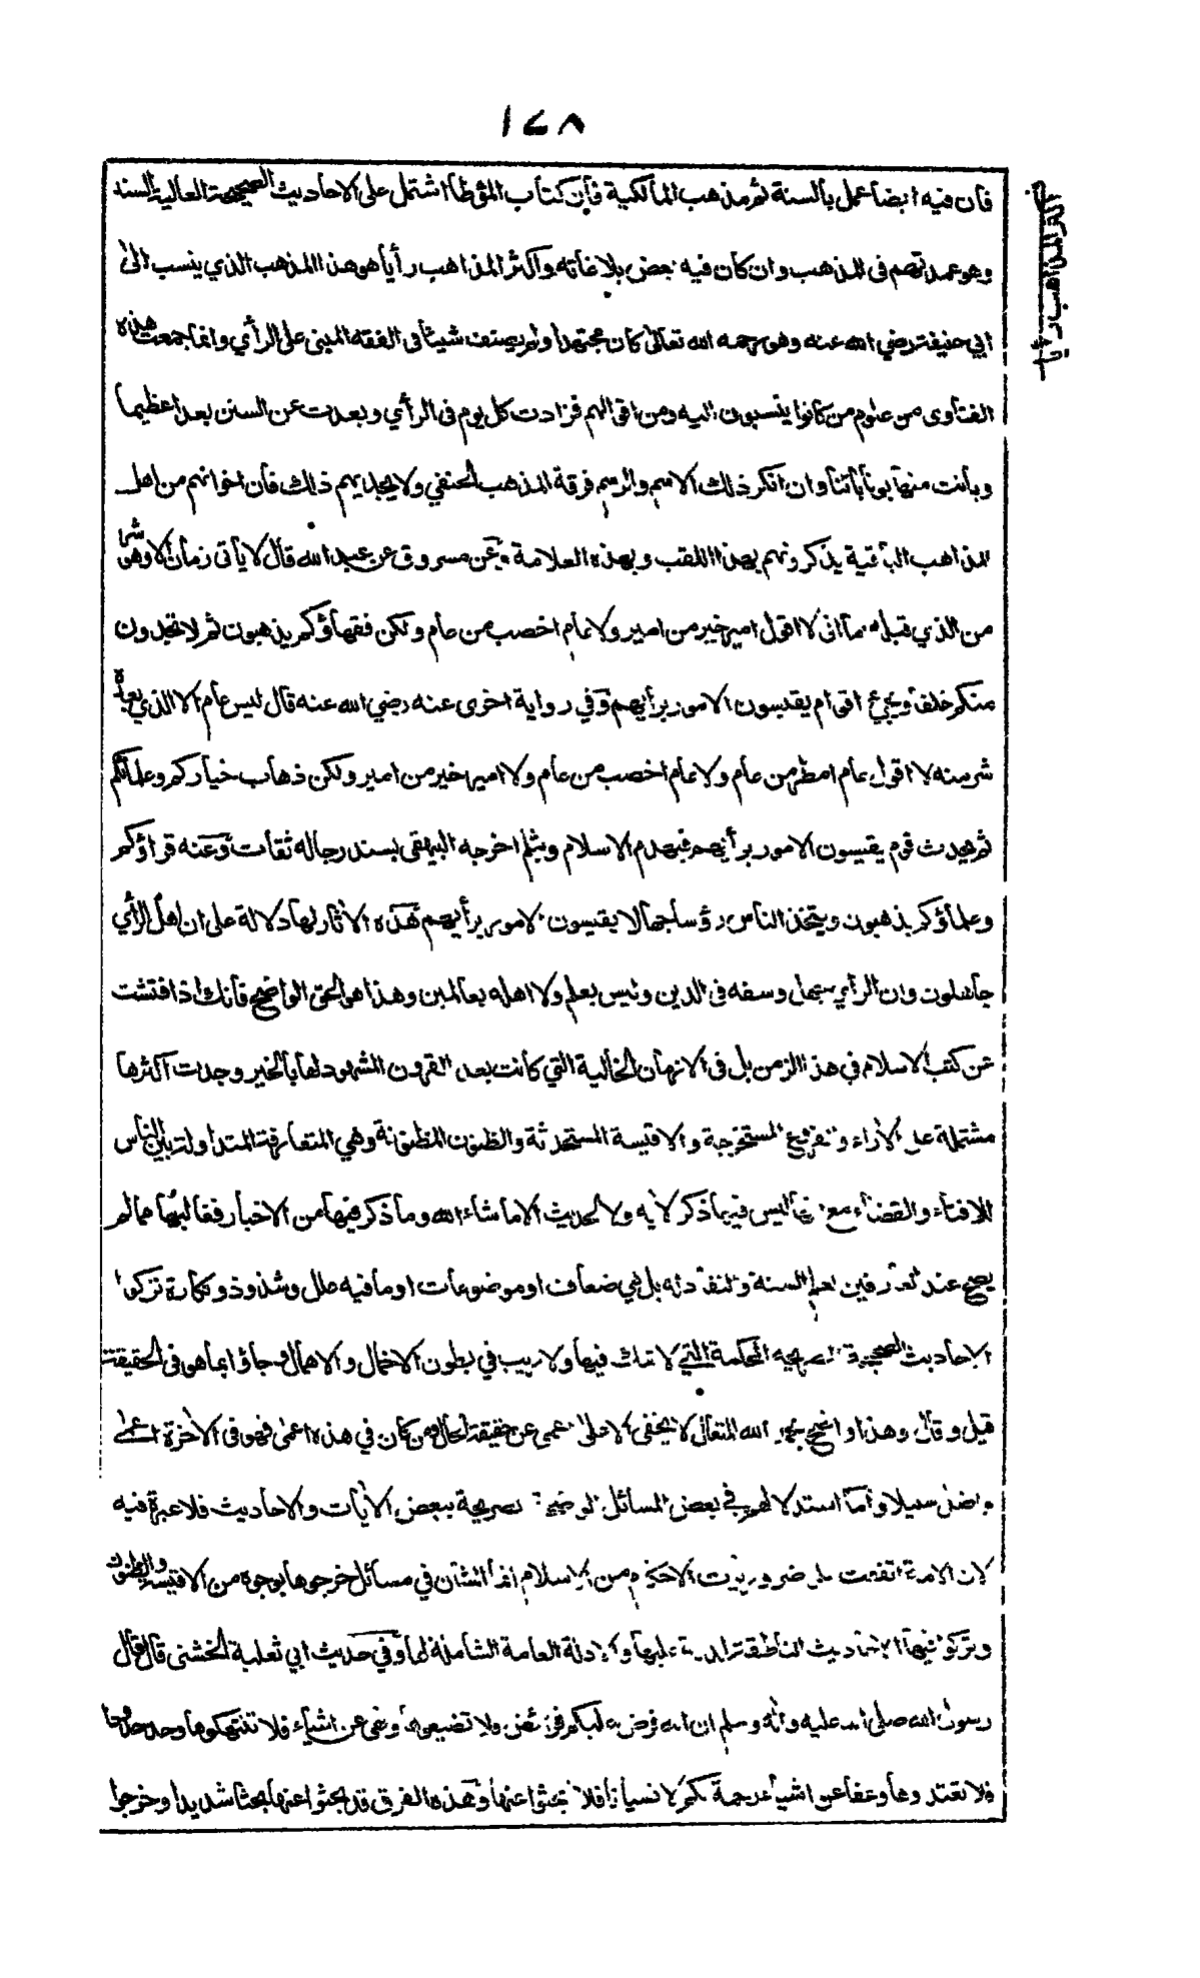 ١٤٨
فان فيه ايضا عمل بالسنة ثم مذهب المالكية فان كتاب المؤطا اشتمل على الاحاديث الصحيحة العالية السند
وهو عمدتهم فى المذهب وان كان فيه بعض بلاغاته واكثر المذاهب رأيا هو هذا المذهب الذي ينسب الى
ابي حنيفة رضي الله عنه وهو رحمه الله تعالى كان مجتهدا ولم يصنف شيئا فى الفقه المبنى على الرأي وانما جمعت هذه
الفتاوى من علوم من كانوا ينتسبون اليه ومن اقوالهم فزادت كل يوم فى الرأي وبعدت عن السنن بعدا عظيما
وبانت منها بونا بائنا وان انكر ذلك الاسم والرسم فرقة المذهب الحنفي ولا يجديهم ذلك فان اخوانهم من اهل
المذاهب الباقية يذكرونهم بهذا اللقب وبهذه العلامة وعن مسروق عن عبد الله قال لا يأتى زمان الا وهو شر
من الذي قبله اما انى لا اقول امير خير من امير ولا عام اخصب من عام ولكن فقهاؤكم يذهبون ثم لا تجدون
منكم خلفا ويجيء اقوام يقيسون الامور برأيهم وفي رواية اخرى عنه رضي الله عنه قال ليس عام الا الذي بعده
شر منه لا اقول عام امطر من عام ولا عام اخصب من عام ولا امير خير من امير ولكن ذهاب خياركم وعلمائكم
ثم يحدث قوم يقيسون الامور برأيهم فيهدم الاسلام ويثلم اخرجه البيهقى بسند رجاله ثقات وعنه قراؤكم
وعلماؤكم يذهبون ويتخذ الناس رؤسا جهالا يقيسون الامور برأيهم هذه الأثار لها دلالة على ان اهل الرأي
جاهلون وان الرأي جهل وسفه فى الدين وليس بعلم ولا اهله بعالمين وهذا هو الحق الواضح فانك اذا فتشت
عن كتب الاسلام في هذا الزمن بل فى الازمان الخالية التي كانت بعد القرون المشهود لها بالخير وجدت اكثرها
مشتملة على الأراء والتفاريع المستخرجة والاقيسة المستحدثة والظنون المظنونة وهي المتعارفة المتداولة بين الناس
للافتاء والقضاء مع انها ليس فيها ذكر لأية ولا لحديث الا ما شاء الله وما ذكر فيها من الاخبار فغالبها مما لم
يصح عند العارفين بعلم السنة والنقاد له بل هي ضعاف او موضوعات او ما فيه علل وشذوذ ونكارة تركوا
الاحاديث الصحيحة الصريحة المحكمة التي لا شك فيها ولا ريب في بطون الاخمال والاهمال وجاؤا بما هو فى الحقيقة
قيل وقال وهذا واضح بحمد الله المتعال لا يخفى الا على اعمى عن حقيقة الحال ومن كان في هذه اعمى فهو فى الأخرة اعمى
واضل سبيلا واما استدلالهم في بعض المسائل الواضحة الصريحة ببعض الأيات والاحاديث فلا عبرة فيه
لان الامة اتفقت على ضروريات الاحكام من الاسلام انما الشان في مسائل خرجوها بوجوه من الاقيسة والظنون
وتركوا فيها الاحاديث الناطقة الدالة عليها والادلة العامة الشاملة لها وفي حديث ابي ثعلبة الخشنى قال قال
رسول الله صلى الله عليه وأله وسلم ان الله فرض عليكم فرائض ولا تضيعوها ونهى عن اشياء فلا تنتهكوها وحد حدودا
فلا تعتدوها وعفا عن اشياء رحمة لكم لا نسيانا فلا تبحثوا عنها وهذه الفرق قد بحثوا عنها بحثا شديدا وخرجوا
اكثر المذاهب رأيا